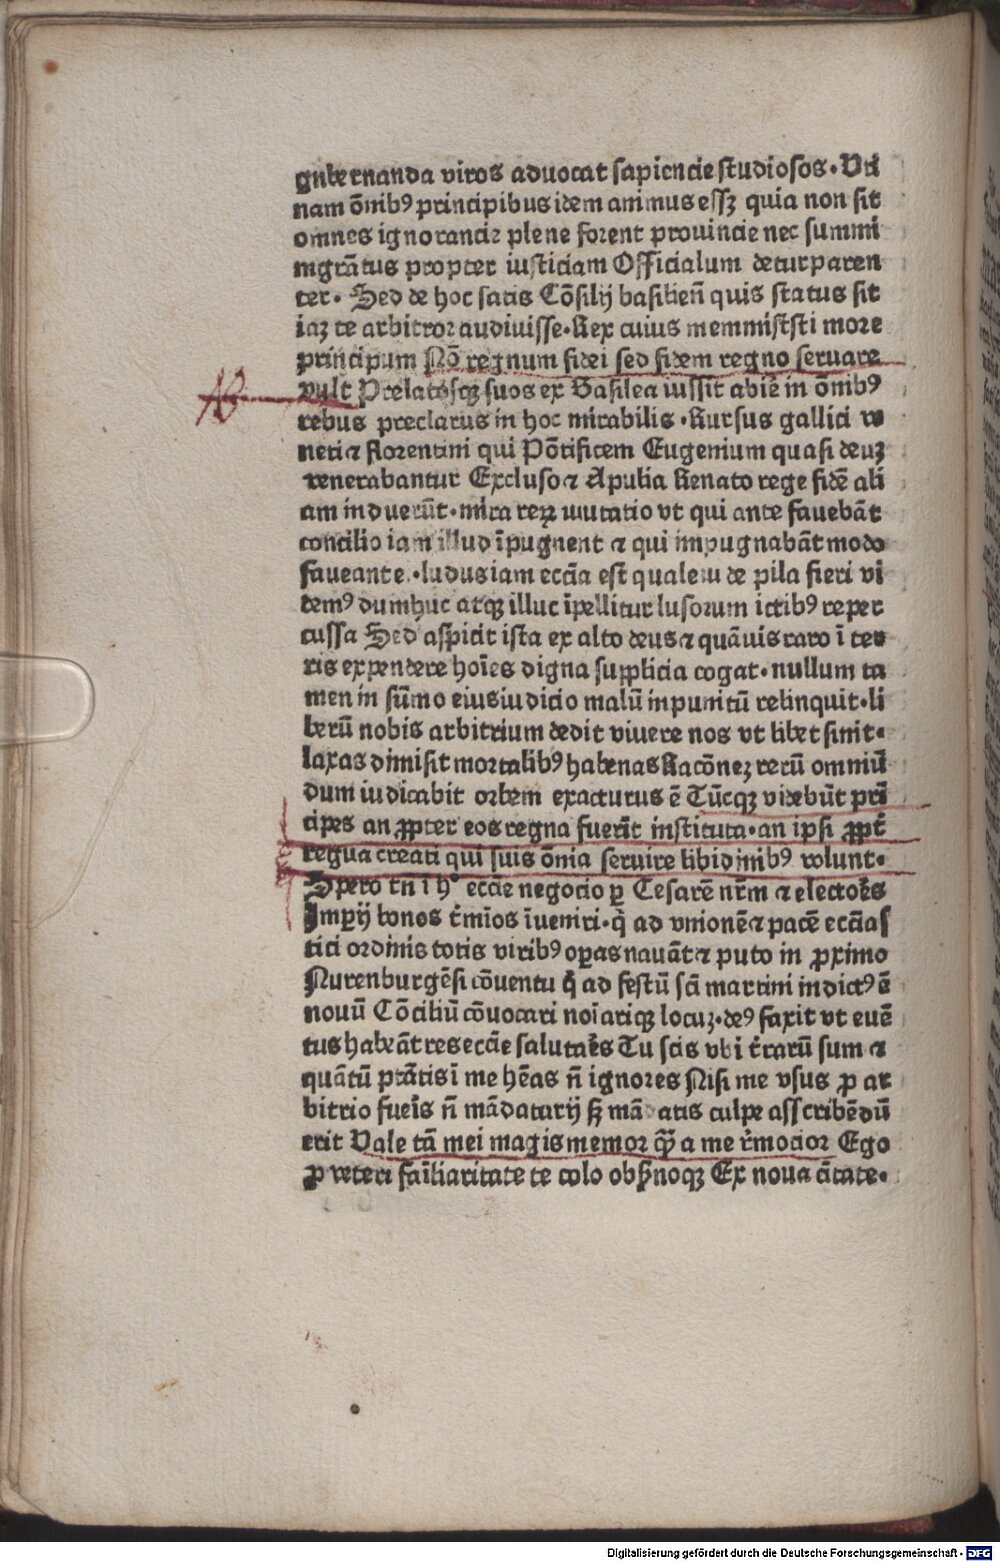 gubernanda viros aduocat sapiencie studiosos. Uti
nam õnibꝰ principibus idem animus essꝫ quia non sit
omnes ignorancie plene forent prouincie nec summi
mgrãtus propter iusticiam Officialum deturparen
ter. Sed de hoc satis Cõsilij basilien̄ quis status sit
iaꝫ te arbitror audiuisse. Rex cuius memmististi more
principum Nõ regnum fidei sed fidem regno seruare
NB
vult Prelatosqꝫ suos ex Basilea iussit abiẽ in õnibꝰ
rebus preclarus in hoc mirabilis. Rursus gallici ve
neti ⁊ florentini qui Põtificem Eugenium quasi deuꝫ
venerabantur Excluso ⁊ Apulia Renato rege fidẽ ali
am induerũt. mira reꝝ mutatio vt qui ante fauebãt
concilio iam illud ĩpugnent ⁊ qui impugnabãt modo
faueante. ludus iam eccĩa est qualem de pila fieri vi
demꝰ dum huc atqꝫ illuc ĩpellitur lusorum ictibꝰ reper
cussa Sed aspicit ista ex alto deus ⁊ quãuis raro ĩ ter
ris expendere hoĩes digna supplicia cogat. nullum ta
men in sũmo eius iudicio malũ inpunitũ relinquit. li
berũ nobis arbitrium dedit viuere nos vt libet sinit.
laxas dimisit mortalibꝰ habenas Racõneꝫ rerũ omniũ
dum iudicabit orbem exacturus ẽ Tũcqꝫ videbũt prĩ
cipes an ꝓpter eos regna fuerĩt instituta. an ipsi ꝓpt̃
regna creati qui suis õnia seruire libidinibꝰ volunt.
Spero tñ ĩ hᵒ eccĩe negocio ꝑ Cesarẽ nr̃m ⁊ electoẽs
Impĳ bonos t̃mĩos ĩueniri. q̃ ad vnionẽ ⁊ pacẽ eccĩas
tici ordinis totis viribꝰ oꝑas nauãt ⁊ puto in ꝓximo
Nurenburgẽsi cõuentu q̃ ad festũ scĩ martini indictꝰ ẽ
nouũ Cõciliũ cõuocari noĩariqꝫ locuꝫ. deꝰ faxit vt euẽ
tus habeãt res eccĩe salutaẽs Tu scis vbi t̃rarũ sum ⁊
quãtũ ptãtis ĩ me hẽas ñ ignores Nisi me vsus ꝓ ar
bitrio fueĩs ñ mãdatarij sꝫ mãdatis culpe asscribẽdũ
erit Vale tã mei magis memor q̃ȝ a me r̃mocior Ego
ꝓ veteri faĩliaritate te colo obẞnoqꝫ Ex noua cĩtate.
Digitalisierung gefördert durch die Deutsche Forschungsgemeinschaft - DFG